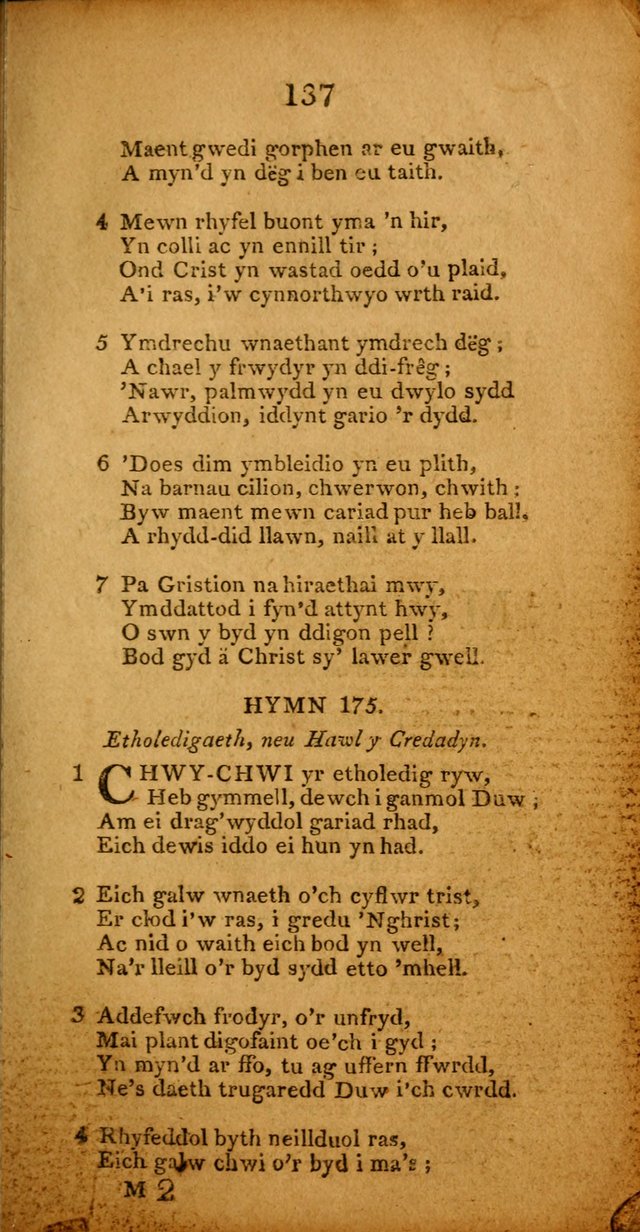 137
Maent gwedi gorphen ar eu gwaith,
A myn'd yn dëg i ben eu taith.
4 Mewn rhyfel buont yma 'n hir,
Yn colli ac yn ennill tir ;
Ond Crist yn wastad oedd o'u plaid,
A'i ras, i'w cynnorthwyo wrth raid.
5 Ymdrechu wnaethant ymdrech dëg ;
A chael y frwydyr yn ddi-frêg ;
'Nawr, palmwydd yn eu dwylo sydd
Arwyddion, iddynt gario 'r dydd.
6 'Does dim ymbleidio yn eu plith,
Na barnau cilion, chwerwon, chwith :
Byw maent mewn cariad pur heb ball,
A rhydd-did llawn, naill at y llall.
7 Pa Gristion na hiraethai mwy,
Ymddattod i fyn'd attynt hwy,
O swn y byd yn ddigon pell ?
Bod gyd ä Christ sy' lawer gwell.
HYMN 175.
Etholedigaeth, neu Hawl y Credadyn.
1 CHWY-CHWI yr etholedig ryw,
Heb gymmell, dewch i ganmol Duw ;
Am ei drag'wyddol gariad rhad,
Eich dewis iddo ei hun yn had.
2 Eich galw wnaeth o'ch cyflwr trist,
Er clod i'w ras, i gredu 'Nghrist;
Ac nid o waith eich bod yn well,
Na'r lleill o'r byd sydd etto 'mhell.
3 Addefwch frodyr, o'r unfryd,
Mai plant digofaint oe'ch i gyd ;
Yn myn'd ar ffo, tu ag uffern ffwrdd,
Ne's daeth trugaredd Duw i'ch cwrdd.
4 Rhyfeddol byth neillduol ras,
Eich galw chwi o'r byd i ma's ;
M 2